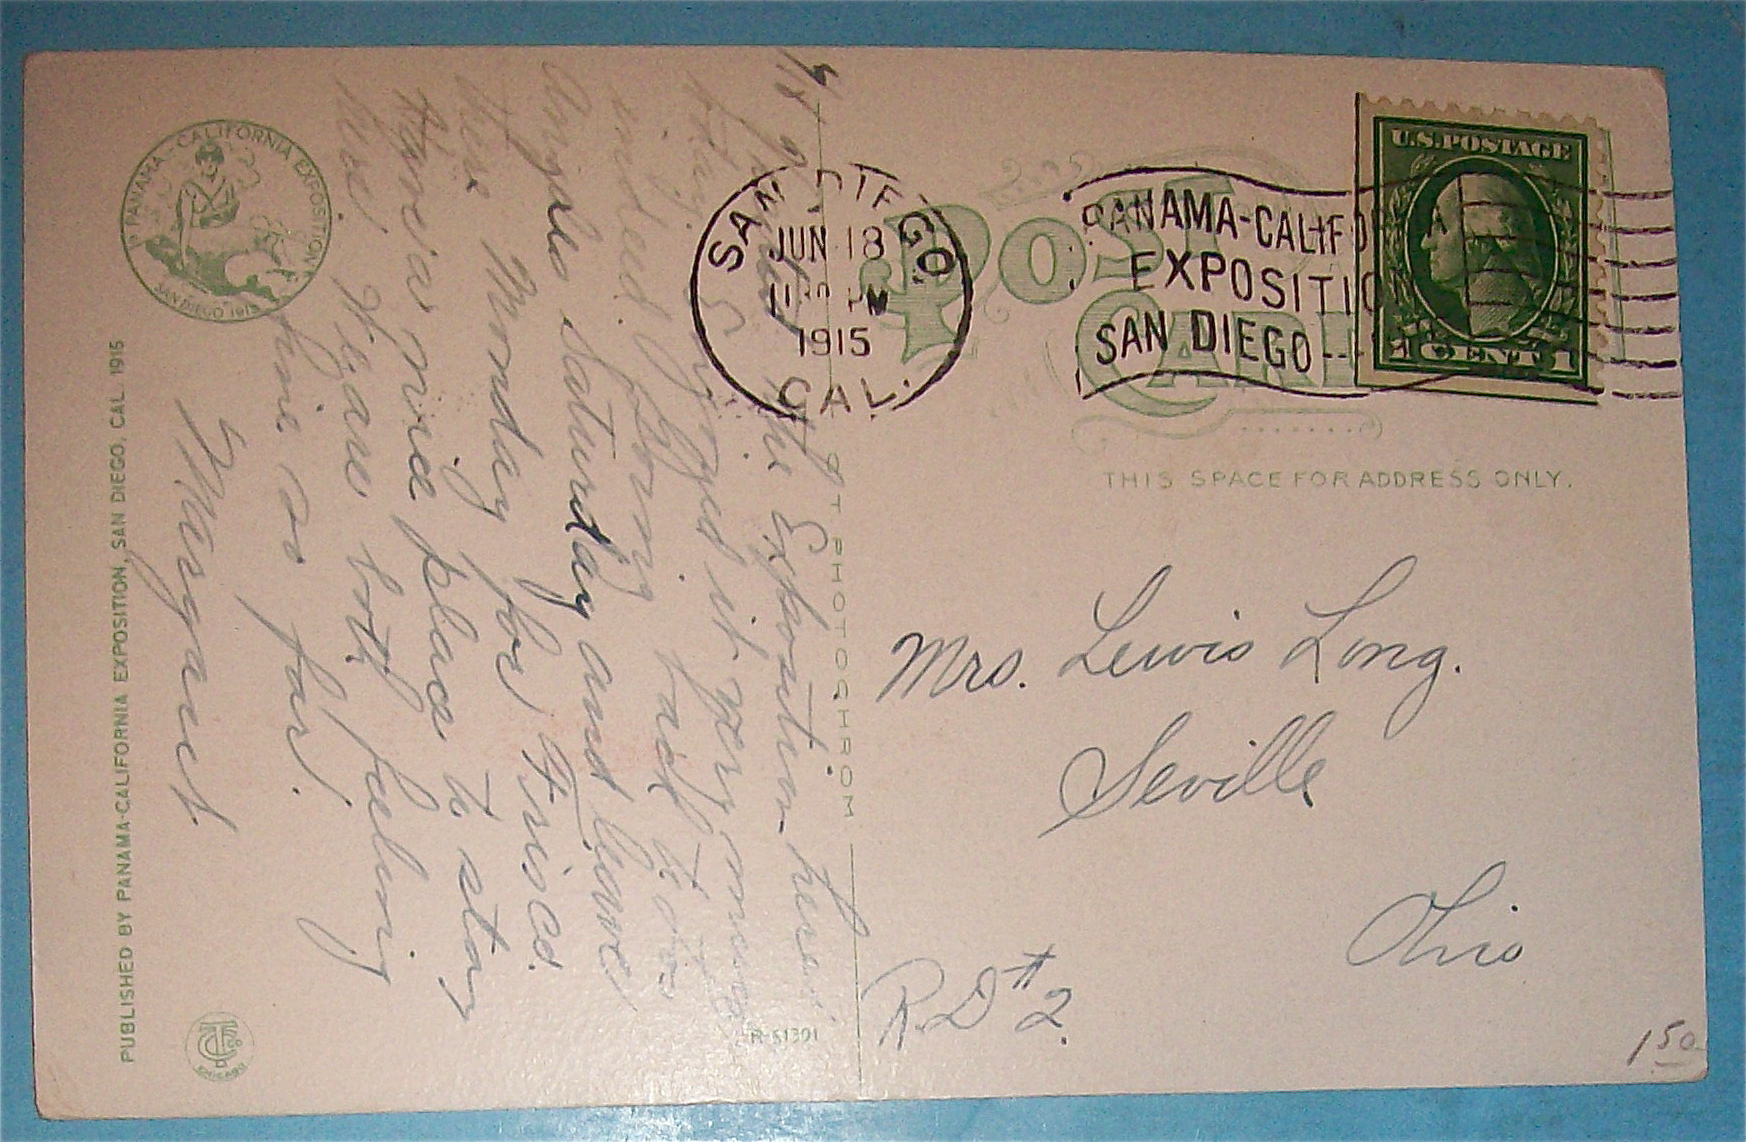 PANAMA-CALIFORNIA EXPOSITION
SAN DIEGO 1915
PUBLISHED BY PANAMA-CALIFORNIA EXPOSITION, SAN DIEGO, CAL. 1915
CHICAGO
R-61391
PHOTOCHROM
the Exposition here
enjoyed it very much
indeed. Going back to Los
Angeles Saturday and leave
here Monday for Frisco.
nice place to stay
We are both feeling
fine so far.
Margaret
SAN DIEGO,
JUN 18
1915
CAL.
PANAMA-CALIFORNIA
EXPOSITION
SAN DIEGO
U.S. POSTAGE
1 CENT 1
POST
CARD
THIS SPACE FOR ADDRESS ONLY.
Mrs. Lewis Long.
Seville
Ohio
R.D #2.
150